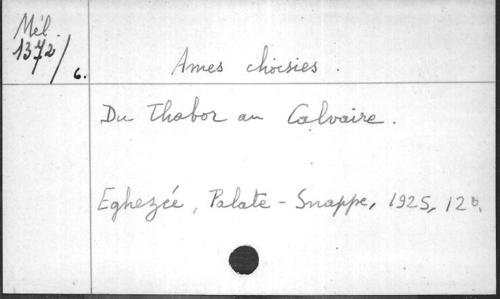 Mél.
1372/6.
Ames choisies.
Du Thabor au Calvaire.
Eghezée, Palate-Snappe, 1925, 12°.